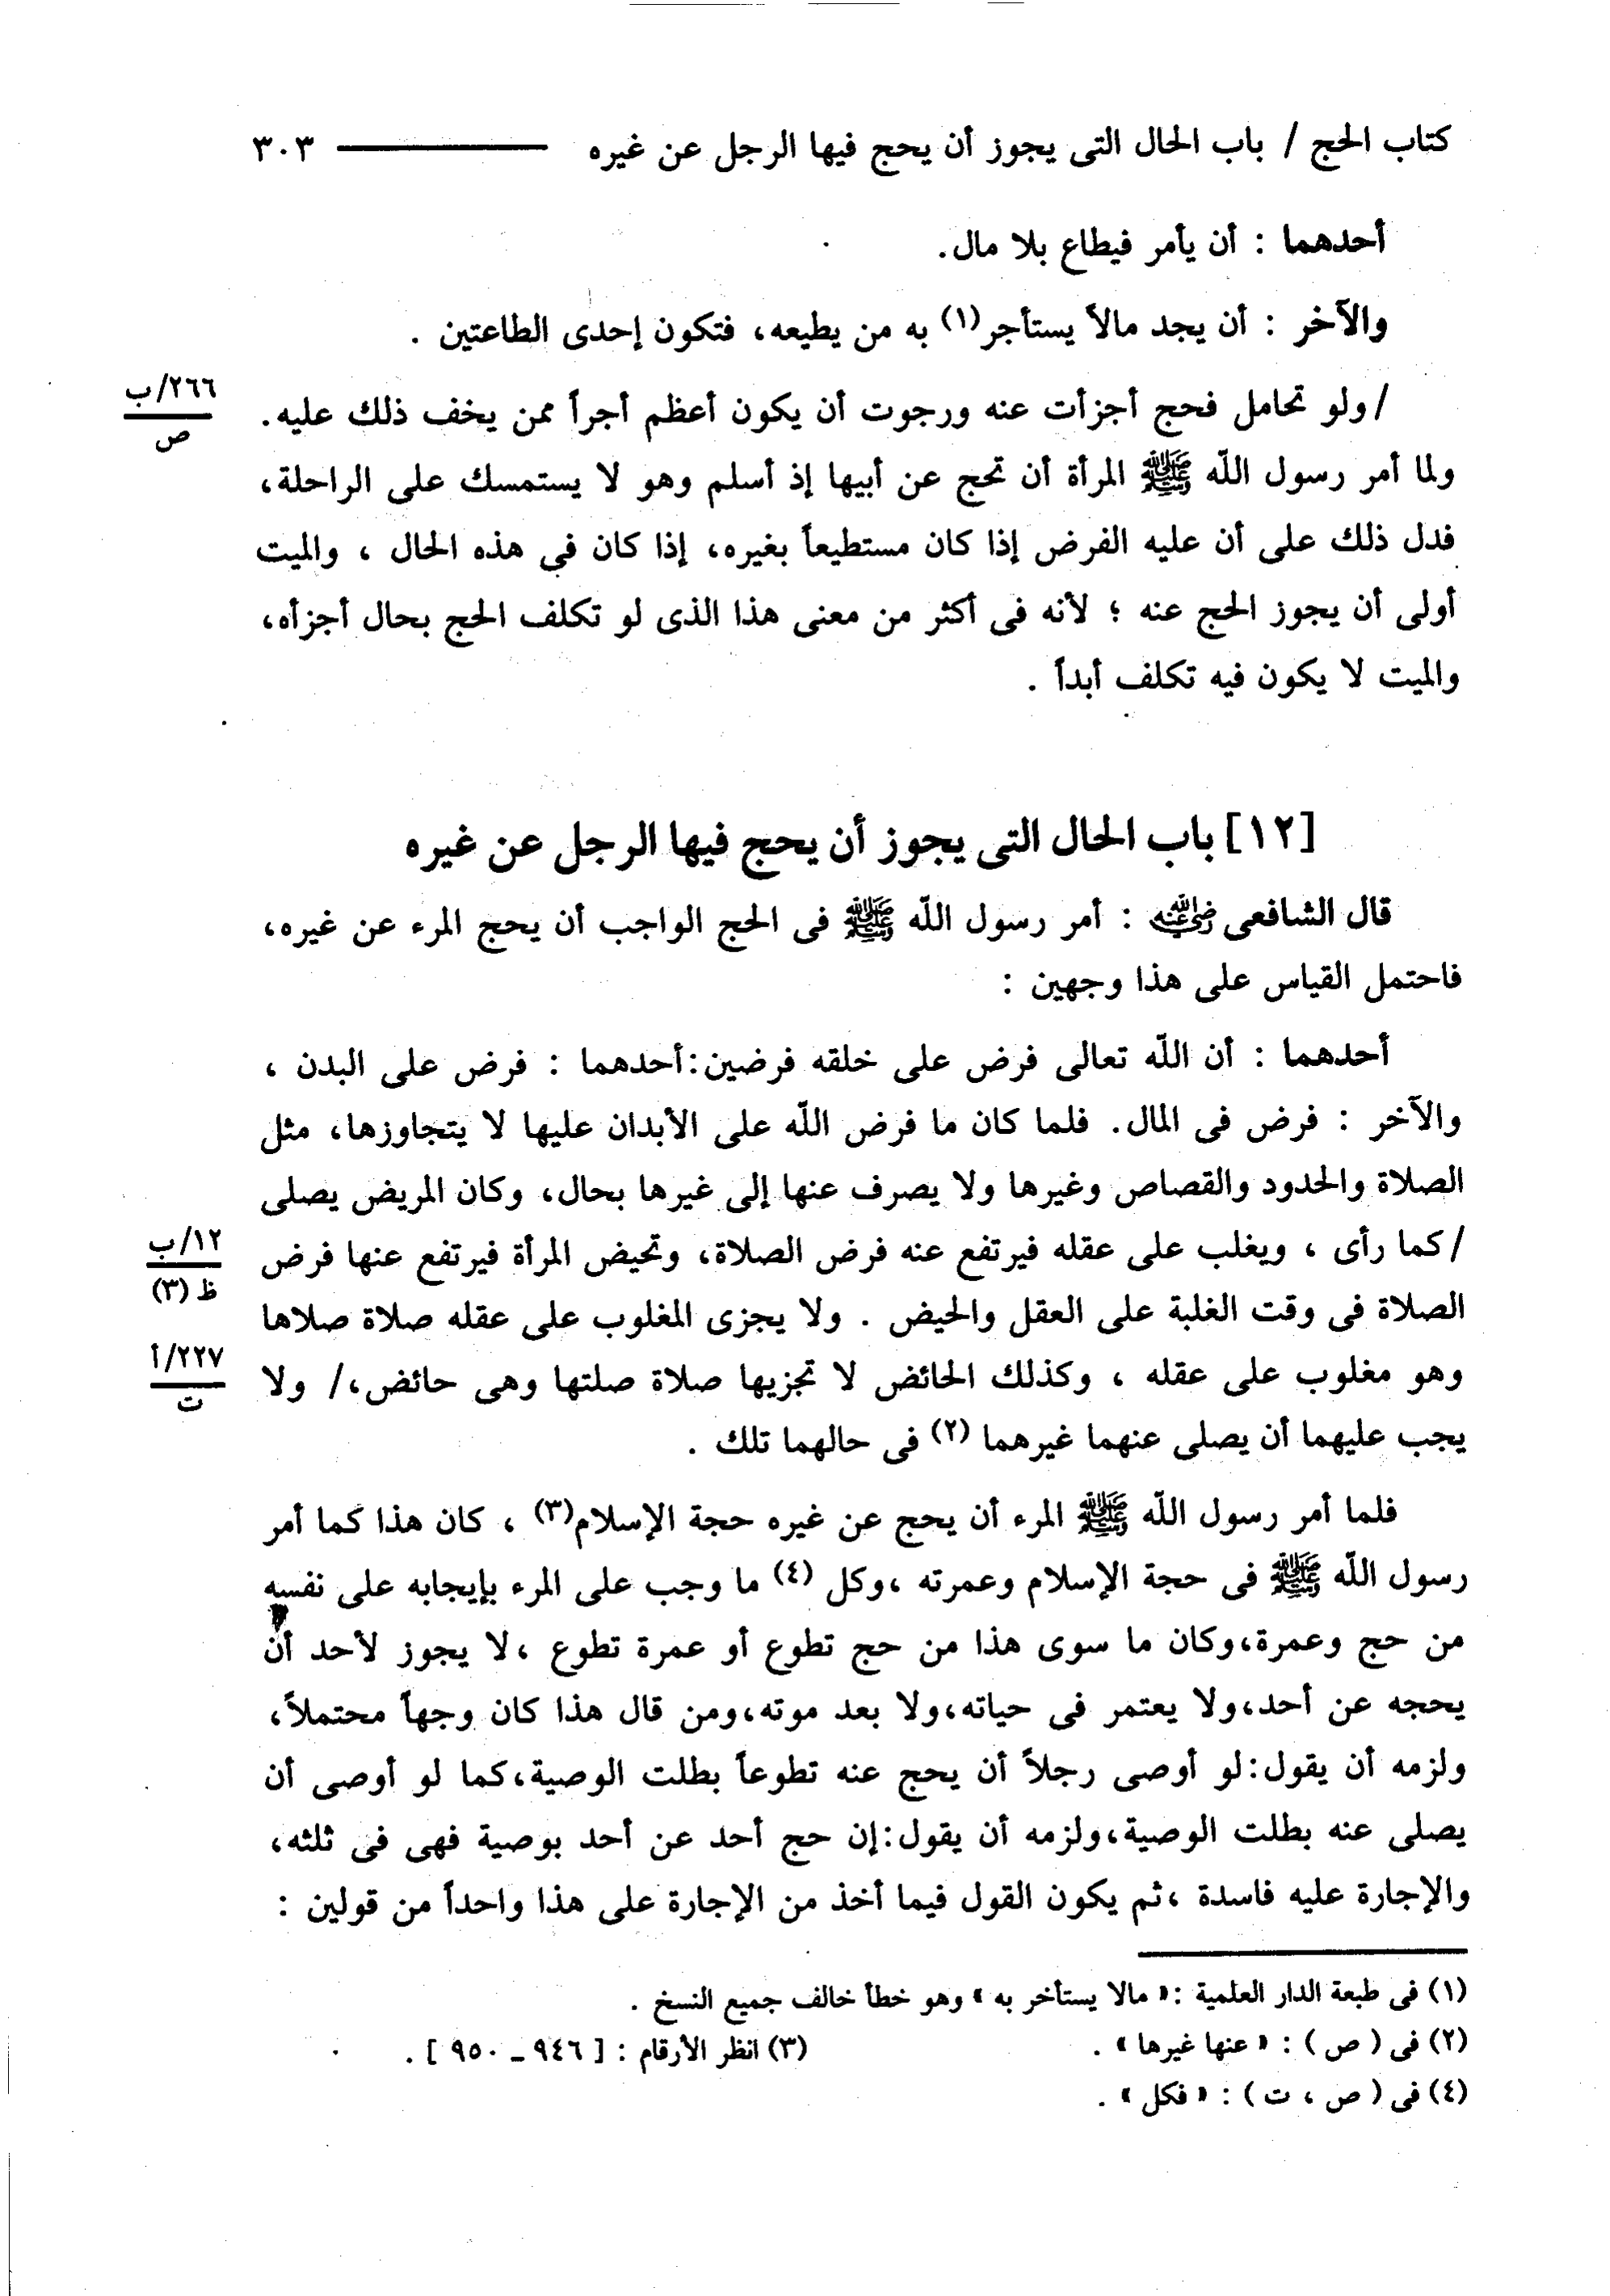 كتاب الحج / باب الحال التى يجوز أن يحج فيها الرجل عن غيره ـــــــ ٣٠٣
أحدهما : أن يأمر فيطاع بلا مال.
والآخر : أن يجد مالاً يستأجر(١) به من يطيعه، فتكون إحدى الطاعتين .
/ولو تحامل فحج أجزأت عنه ورجوت أن يكون أعظم أجراً ممن يخف ذلك عليه.
٢٦٦/ب
ص
ولما أمر رسول الله ﷺ المرأة أن تحج عن أبيها إذ أسلم وهو لا يستمسك على الراحلة،
فدل ذلك على أن عليه الفرض إذا كان مستطيعاً بغيره، إذا كان فى هذه الحال ، والميت
أولى أن يجوز الحج عنه ؛ لأنه فى أكثر من معنى هذا الذى لو تكلف الحج بحال أجزأه،
والميت لا يكون فيه تكلف أبداً .
[١٢] باب الحال التى يجوز أن يحج فيها الرجل عن غيره
قال الشافعى رضي الله عنه : أمر رسول الله ﷺ فى الحج الواجب أن يحج المرء عن غيره،
فاحتمل القياس على هذا وجهين :
أحدهما : أن الله تعالى فرض على خلقه فرضين:أحدهما : فرض على البدن ،
والآخر : فرض فى المال. فلما كان ما فرض الله على الأبدان عليها لا يتجاوزها، مثل
الصلاة والحدود والقصاص وغيرها ولا يصرف عنها إلى غيرها بحال، وكان المريض يصلى
/كما رأى ، ويغلب على عقله فيرتفع عنه فرض الصلاة، وتحيض المرأة فيرتفع عنها فرض
١٢/ب
ظ (٣)
الصلاة فى وقت الغلبة على العقل والحيض . ولا يجزى المغلوب على عقله صلاة صلاها
وهو مغلوب على عقله ، وكذلك الحائض لا تجزيها صلاة صلتها وهى حائض،/ ولا
٢٢٧/أ
ت
يجب عليهما أن يصلى عنهما غيرهما (٢) فى حالهما تلك .
فلما أمر رسول الله ﷺ المرء أن يحج عن غيره حجة الإسلام(٣) ، كان هذا كما أمر
رسول الله ﷺ فى حجة الإسلام وعمرته ،وكل (٤) ما وجب على المرء بإيجابه على نفسه
من حج وعمرة،وكان ما سوى هذا من حج تطوع أو عمرة تطوع ،لا يجوز لأحد أن
يحجه عن أحد،ولا يعتمر فى حياته،ولا بعد موته،ومن قال هذا كان وجهاً محتملاً،
ولزمه أن يقول:لو أوصى رجلاً أن يحج عنه تطوعاً بطلت الوصية،كما لو أوصى أن
يصلى عنه بطلت الوصية،ولزمه أن يقول:إن حج أحد عن أحد بوصية فهى فى ثلثه،
والإجارة عليه فاسدة ،ثم يكون القول فيما أخذ من الإجارة على هذا واحداً من قولين :
(١) فى طبعة الدار العلمية :« مالا يستأخر به » وهو خطأ خالف جميع النسخ .
(٢) فى ( ص ) : « عنها غيرها » . (٣) انظر الأرقام : [ ٩٤٦ ـ ٩٥٠ ] .
(٤) فى ( ص ، ت ) : « فكل » .